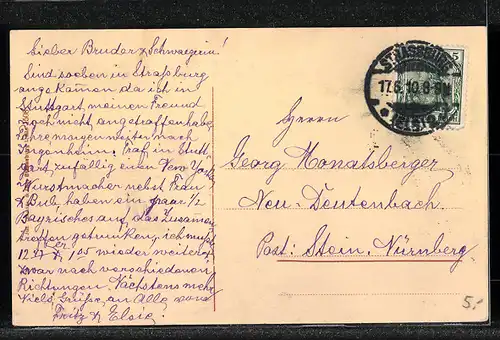 Lieber Bruder & Schwaegerin!
Sind soeben in Straßburg
angekommen da ich in
Stuttgart, meinen Freund
noch nicht angetroffen habe
fahre morgen weiter nach
Traf in Stutt
gart zufällig einen New York
Wurstmacher nebst Frau
& Bub. haben ein paar 1/2
Bayrisches auf das Zusamen
treffen getrunken, ich mußt
12.27 & Er 1.05 wieder weiter
zwar nach verschiedenen
Richtungen. Nächstens mehr
Viele Grüße an Alle von
Fritz & Elsie.
STRASSBURG
17.6.10.8-9N
(ELS)
5
Herrn
Georg Monatsberger
Neu-Deutenbach
Post: Stein. Nürnberg.
5,-